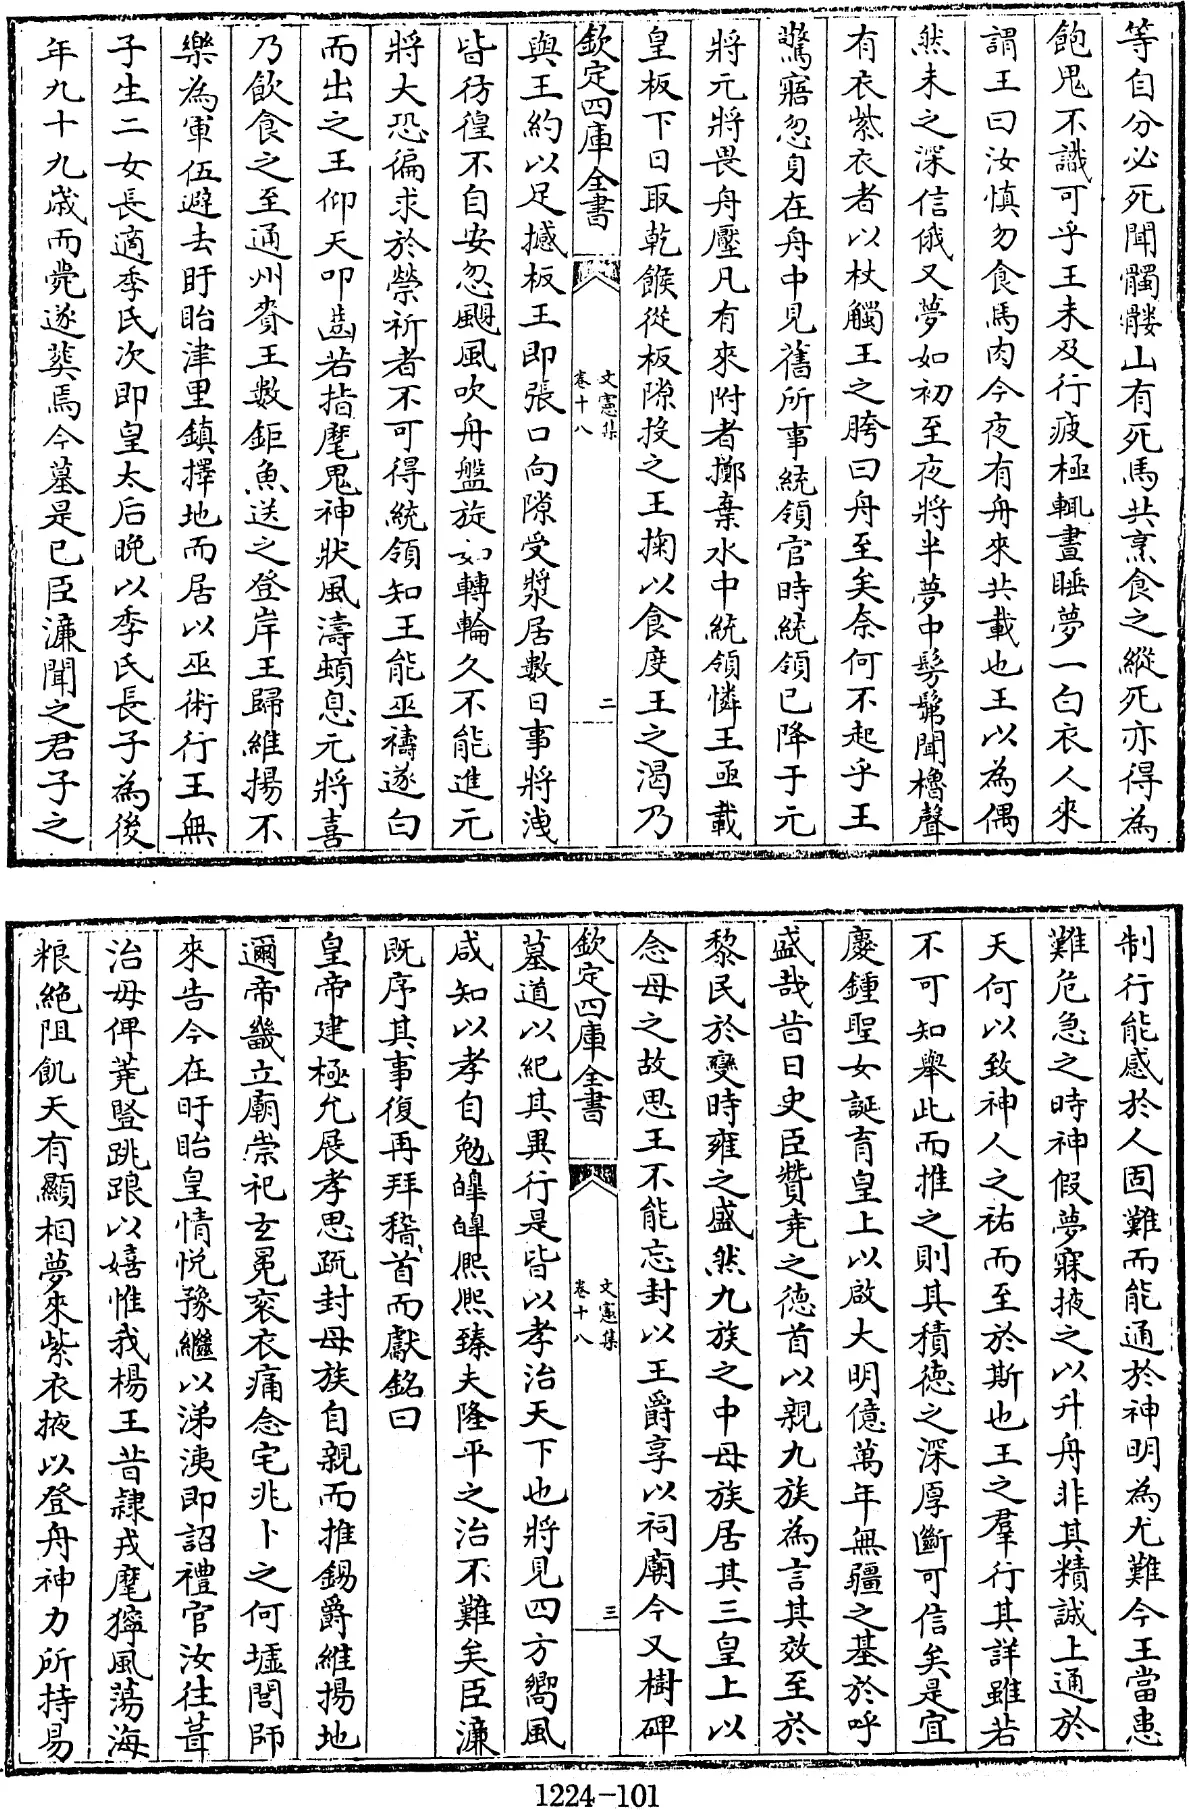 等自分必死聞髑髏山有死馬共烹食之縱死亦得為
飽鬼不識可乎王未及行疲極輒晝睡夢一白衣人來
謂王曰汝慎勿食馬肉今夜有舟來共載也王以為偶
然未之深信俄又夢如初至夜將半夢中髣髴聞櫓聲
有衣紫衣者以杖觸王之胯曰舟至矣奈何不起乎王
驚寤忽身在舟中見舊所事統領官時統領已降于元
將元將畏舟壓凡有來附者擲棄水中統領憐王亟載
皇板下日取乾餱從板隙投之王掬以食度王之渴乃
欽定四庫全書
文憲集
卷十八
二
與王約以足撼板王即張口向隙受漿居數日事將洩
皆彷徨不自安忽颶風吹舟盤旋如轉輪久不能進元
將大恐徧求於禜祈者不可得統領知王能巫禱遂白
而出之王仰天叩齒若指麾鬼神狀風濤頓息元將喜
乃飲食之至通州賚王數鉅魚送之登岸王歸維揚不
樂為軍伍避去盱眙津里鎮擇地而居以巫術行王無
子生二女長適季氏次即皇太后晚以季氏長子為後
年九十九歲而薨遂葬焉今墓是已臣濂聞之君子之
制行能感於人固難而能通於神明為尤難今王當患
難危急之時神假夢寐掖之以升舟非其精誠上通於
天何以致神人之祐而至於斯也王之羣行其詳雖若
不可知舉此而推之則其積德之深厚斷可信矣是宜
慶鍾聖女誕育皇上以啟大明億萬年無疆之基於呼
盛哉昔日史臣贊堯之德首以親九族為言其效至於
黎民於變時雍之盛然九族之中母族居其三皇上以
念母之故思王不能忘封以王爵享以祠廟今又樹碑
欽定四庫全書
文憲集
卷十八
三
墓道以紀其異行是皆以孝治天下也將見四方嚮風
咸知以孝自勉皥皥熙熙臻夫隆平之治不難矣臣濂
既序其事復再拜稽首而獻銘曰
皇帝建極允展孝思疏封母族自親而推錫爵維揚地
邇帝畿立廟崇祀玄冕衮衣痛念宅兆卜之何墟閭師
來告今在盱眙皇情悅豫繼以涕洟即詔禮官汝往葺
治毋俾蕘豎跳踉以嬉惟我楊王昔隸戎麾獰風蕩海
粮絶阻飢天有顯相夢來紫衣掖以登舟神力所持易
1224-101